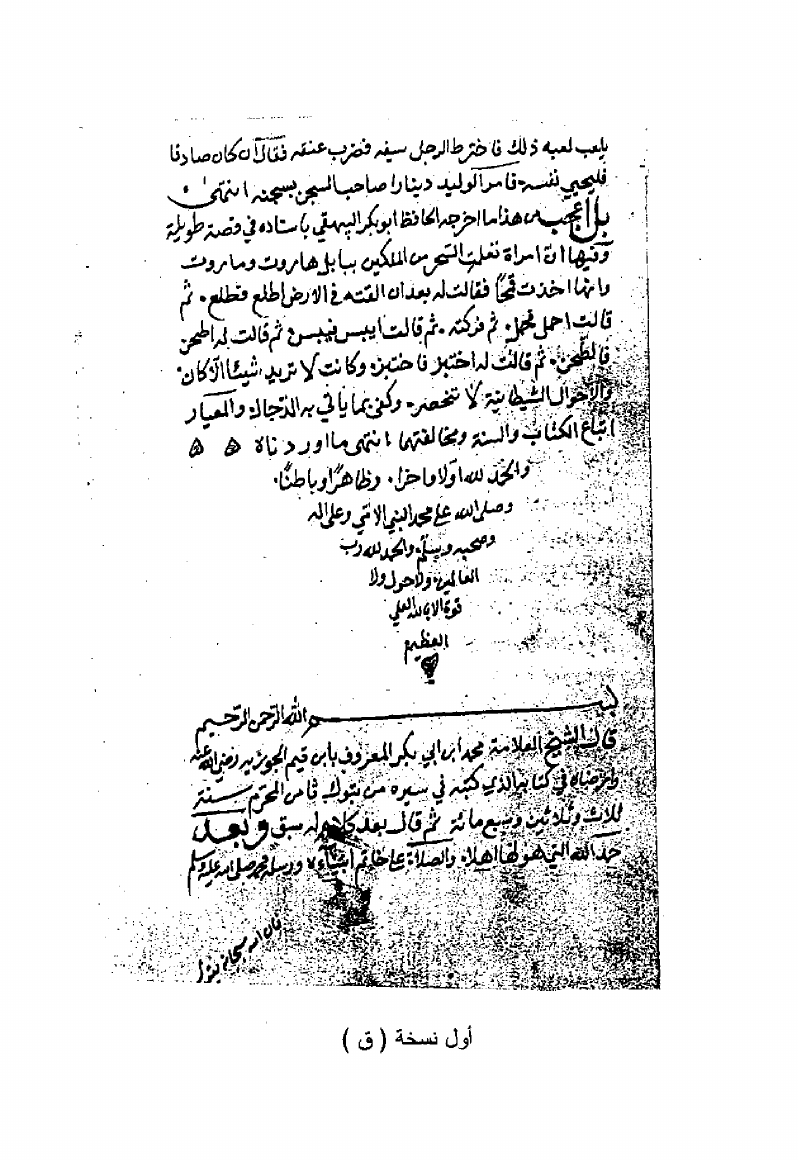 يلعب لعبه ذلك فاخترط الرجل سيفه فضرب عنقه فقال ان كان صادقا
فليحيي نفسه فامر الوليد دينارا صاحب السجن بسجنه انتهى
بل اعجب من هذا ما اخرجه الحافظ ابو بكر البيهقي باسناده في قصة طويلة
وفيها ان امراة تعلمت السحر من الملكين ببابل هاروت وماروت
وانها اخذت قمحا فقالت له بعد ان القته في الارض اطلع فطلع . ثم
قالت احمل فحمل . ثم فركته . ثم قالت ايبس فيبس ثم قالت له اطحن
فاطحن . ثم قالت له اختبز فاختبز وكانت لا تريد شيئا الا كان
والاحوال الشيطانية لا تنحصر . وكفى بما ياتي به الدجال والمعيار
اتباع الكتاب والسنة ومخالفتهما انتهى ما اوردناه ه ه
والحمد لله اولا واخرا . وظاهرًا وباطنًا .
وصلى الله على محمد النبي الامي وعلى اله
وصحبه وسلم والحمد لله رب
العالمين ولا حول ولا
قوة الا بالله العلي
العظيم
بسم الله الرحمن الرحيم
قال الشيخ العلامة محمد ابن ابي بكر المعروف بابن قيم الجوزيه رضي الله عنه
وارضاه في كتابه الذي كتبه في سيره من تبوك ثامن المحرم سنة
ثلاث وثلاثين وسبع مائة ثم قال بعد كلام له سبق وبعد
حمد الله التي هو لها اهلا والصلاة على خاتم انبيآءه ورسله محمد صلى الله عليه وسلم
فان الله سبحانه يقول
أول نسخة ( ق )